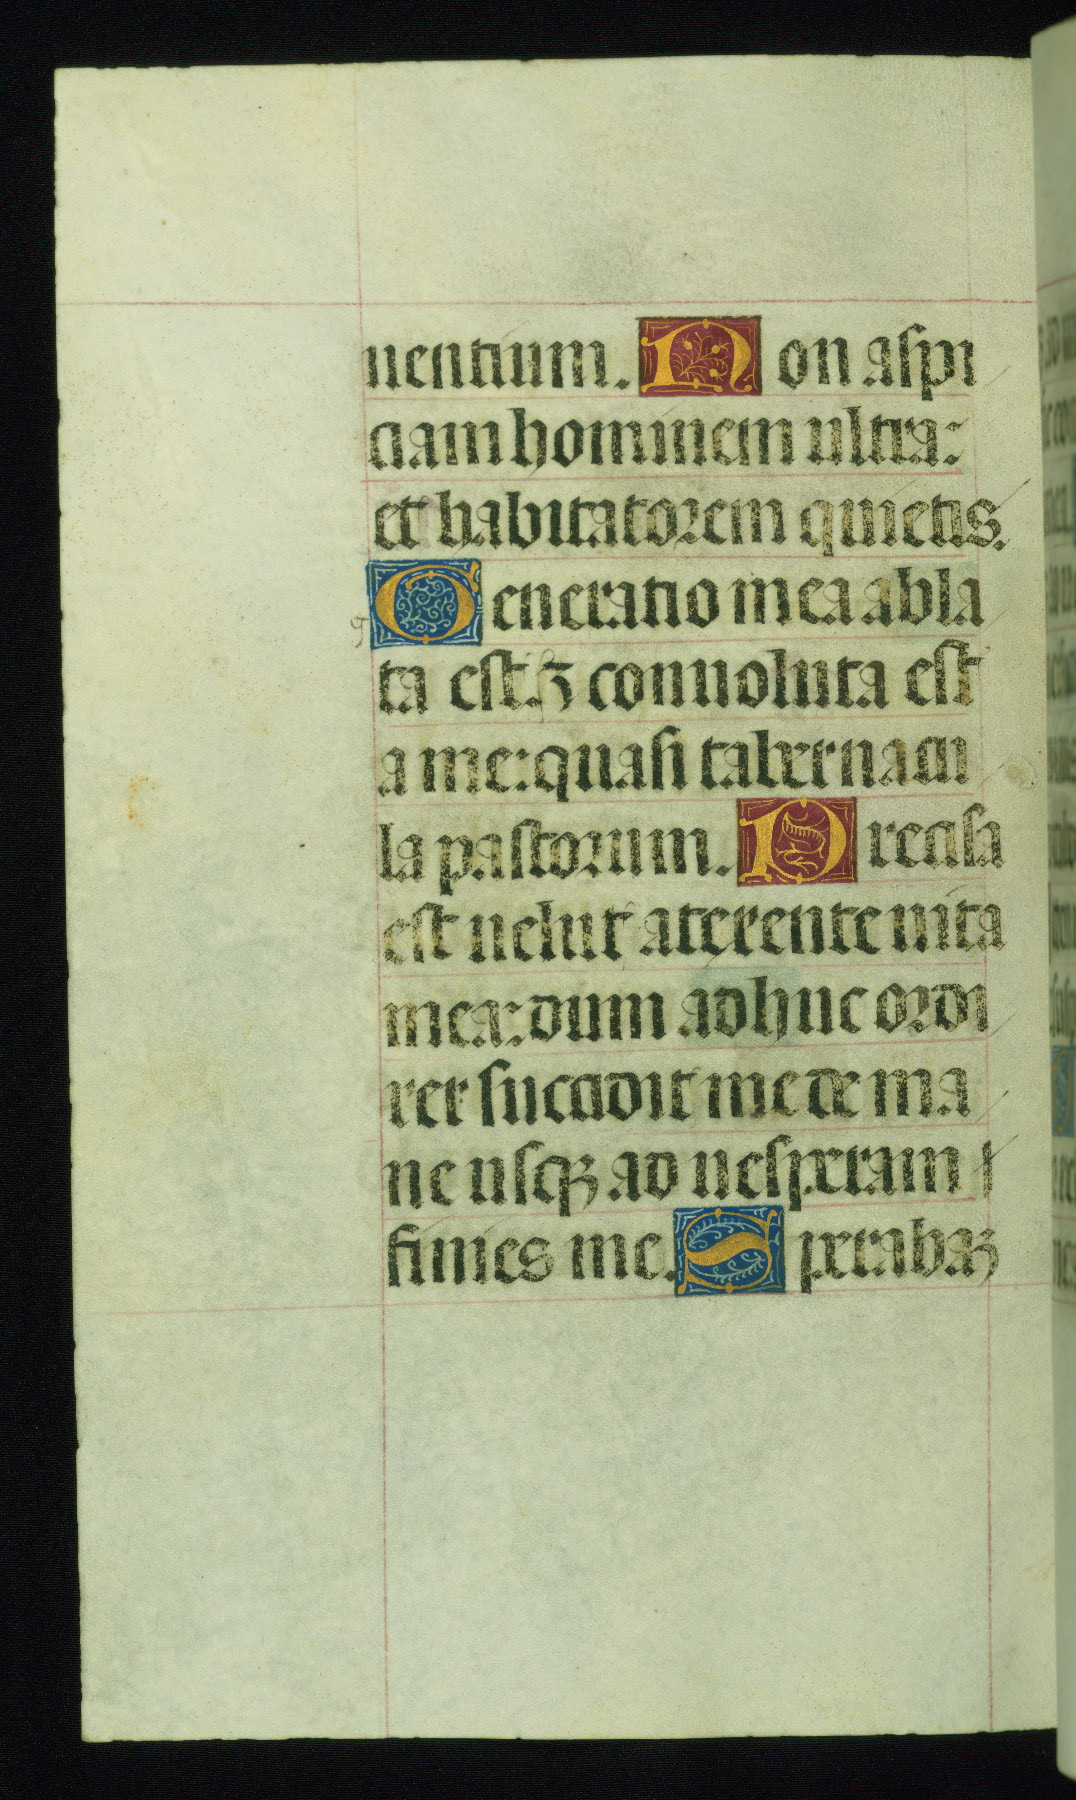 uentium. Non aspi
ciam hominem ultra:
et habitatorem quietis.
Generatio mea abla
ta est. ⁊ conuoluta est
a me: quasi tabernacu
la pastorum. Precisa
est uelut a texente uita
mea: dum adhuc ordi
rer succidit me de ma
ne usqꝫ ad uesperam
finies me. Sperabaꝫ